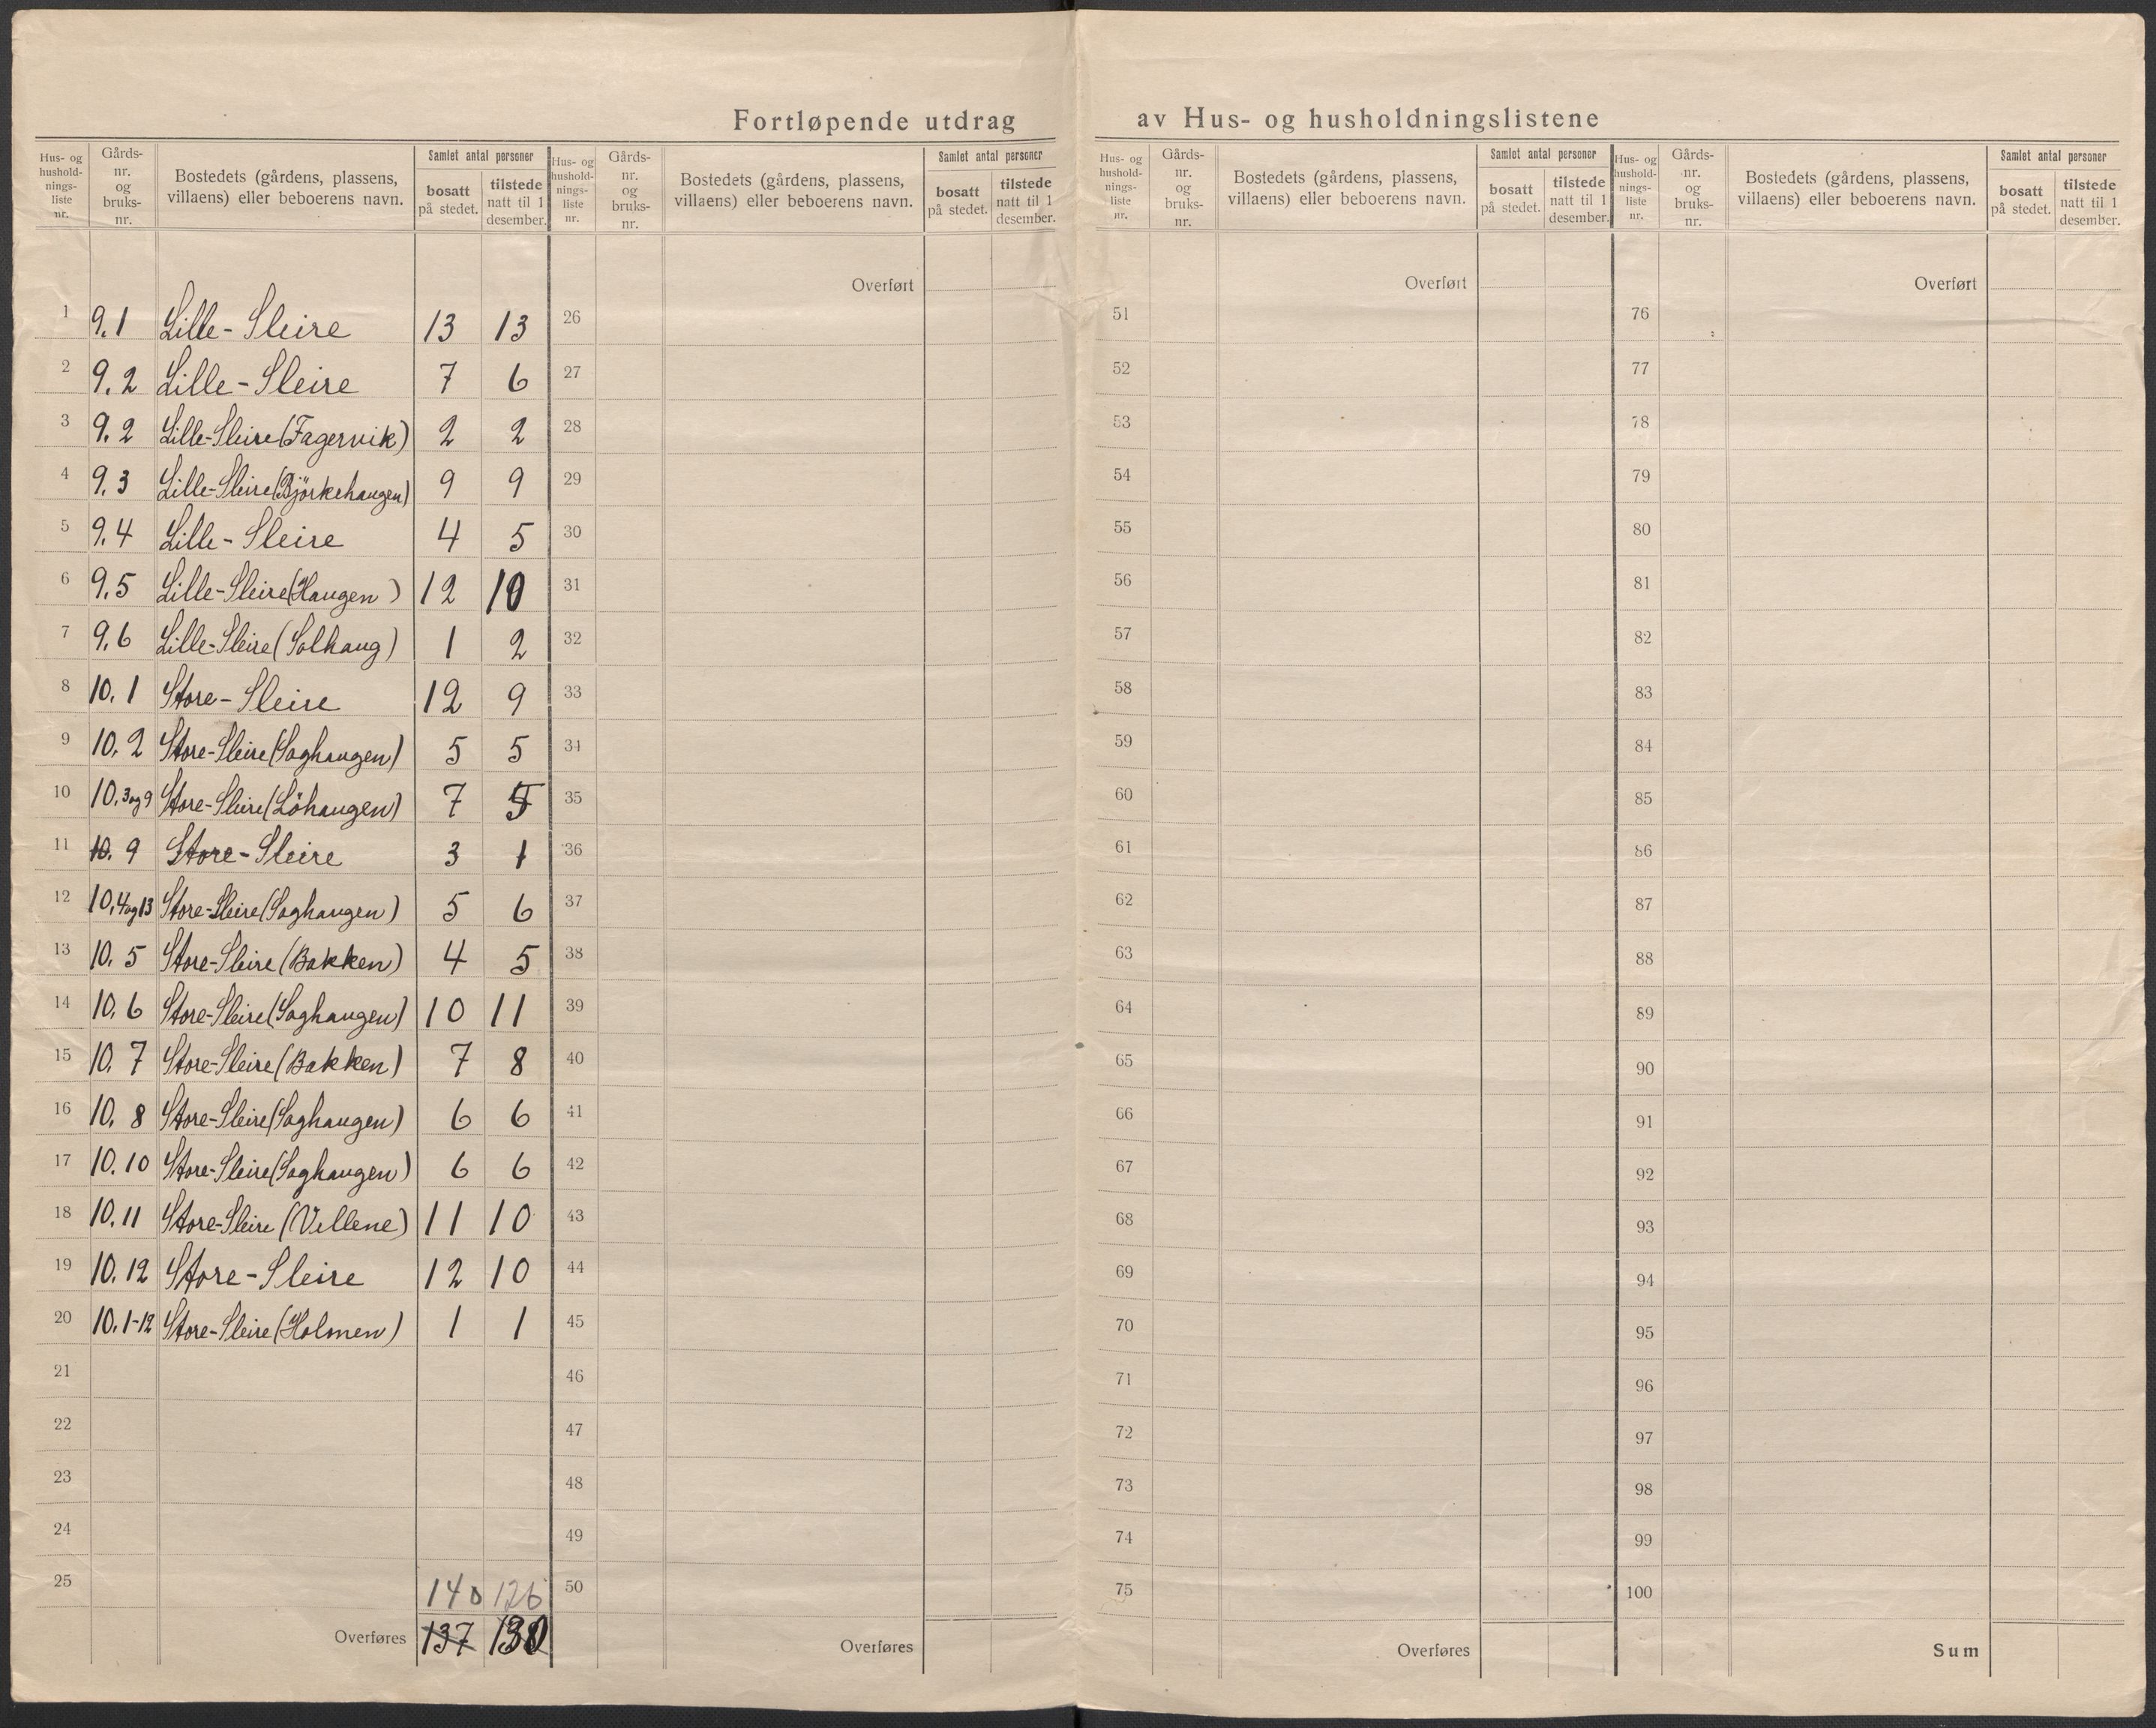 Fortløpende utdrag av Hus- og husholdningslistene
Hus- og hushold-nings-liste nr. Gårds-nr. og bruks-nr. Bostedets (gårdens, plassens, villaens) eller beboerens navn. Samlet antal personer bosatt på stedet. tilstede natt til 1 desember.
Hus- og hushold-nings-liste nr. Gårds-nr. og bruks-nr. Bostedets (gårdens, plassens, villaens) eller beboerens navn. Samlet antal personer bosatt på stedet. tilstede natt til 1 desember.
Hus- og hushold-nings-liste nr. Gårds-nr. og bruks-nr. Bostedets (gårdens, plassens, villaens) eller beboerens navn. Samlet antal personer bosatt på stedet. tilstede natt til 1 desember.
Hus- og hushold-nings-liste nr. Gårds-nr. og bruks-nr. Bostedets (gårdens, plassens, villaens) eller beboerens navn. Samlet antal personer bosatt på stedet. tilstede natt til 1 desember.
1 9.1 Lille-Sleire 13 13
2 9.2 Lille-Sleire 7 6
3 9.2 Lille-Sleire (Fagervik) 2 2
4 9.3 Lille-Sleire (Björkehaugen) 9 9
5 9.4 Lille-Sleire 4 5
6 9.5 Lille-Sleire (Haugen) 12 10
7 9.6 Lille-Sleire (Solhaug) 1 2
8 10.1 Store-Sleire 12 9
9 10.2 Store-Sleire (Saghaugen) 5 5
10 10.3og9 Store-Sleire (Löhaugen) 7 5
11 10.9 Store-Sleire 3 1
12 10.4og13 Store-Sleire (Saghaugen) 5 6
13 10.5 Store-Sleire (Bakken) 4 5
14 10.6 Store-Sleire (Saghaugen) 10 11
15 10.7 Store-Sleire (Bakken) 7 8
16 10.8 Store-Sleire (Saghaugen) 6 6
17 10.10 Store-Sleire (Saghaugen) 6 6
18 10.11 Store-Sleire (Vellene) 11 10
19 10.12 Store-Sleire 12 10
20 10.1-12 Store-Sleire (Holmen) 1 1
21
22
23
24
25 140 126
Overføres 137 130
Overført
26
27
28
29
30
31
32
33
34
35
36
37
38
39
40
41
42
43
44
45
46
47
48
49
50
Overføres
Overført
51
52
53
54
55
56
57
58
59
60
61
62
63
64
65
66
67
68
69
70
71
72
73
74
75
Overføres
Overført
76
77
78
79
80
81
82
83
84
85
86
87
88
89
90
91
92
93
94
95
96
97
98
99
100
Sum